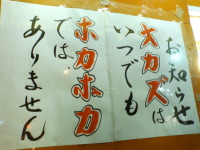 お知らせ
オカズは
いつでも
ホカホカ
では、
ありません